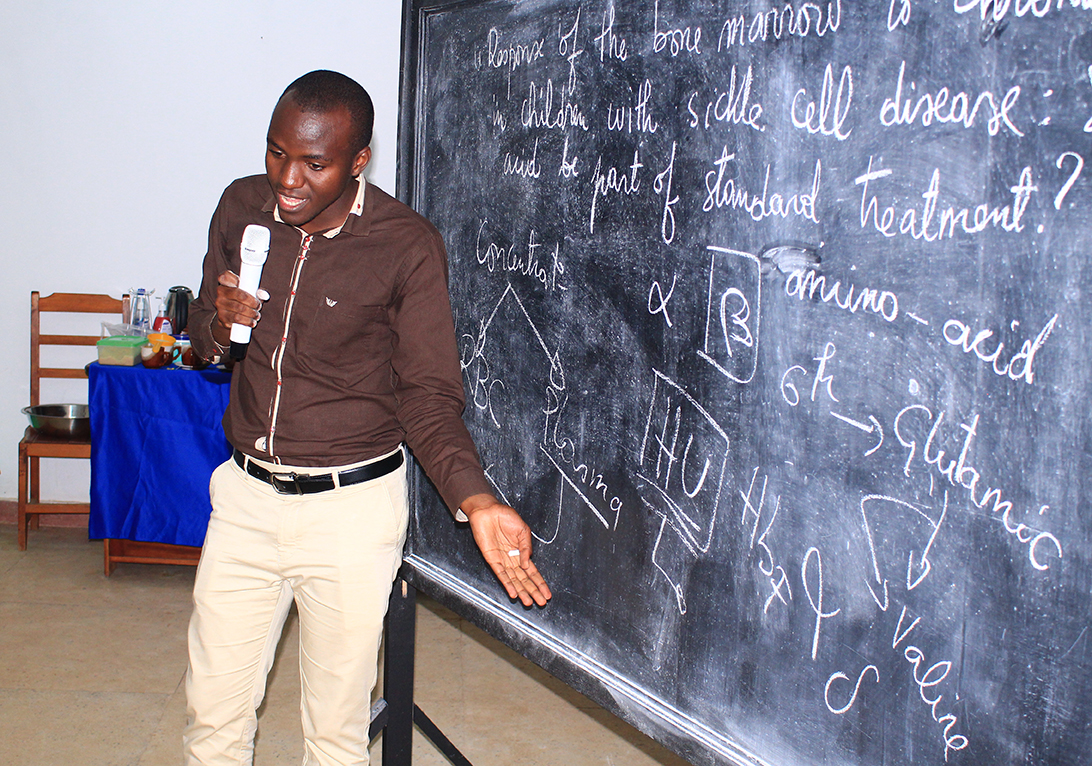 "Response of the bone marrow to
in children with sickle cell disease :
and be part of standard treatment?
Concentrat°
α β amino-acid
RBC
Dosing
HU
6th → Glutamic
Valine
S